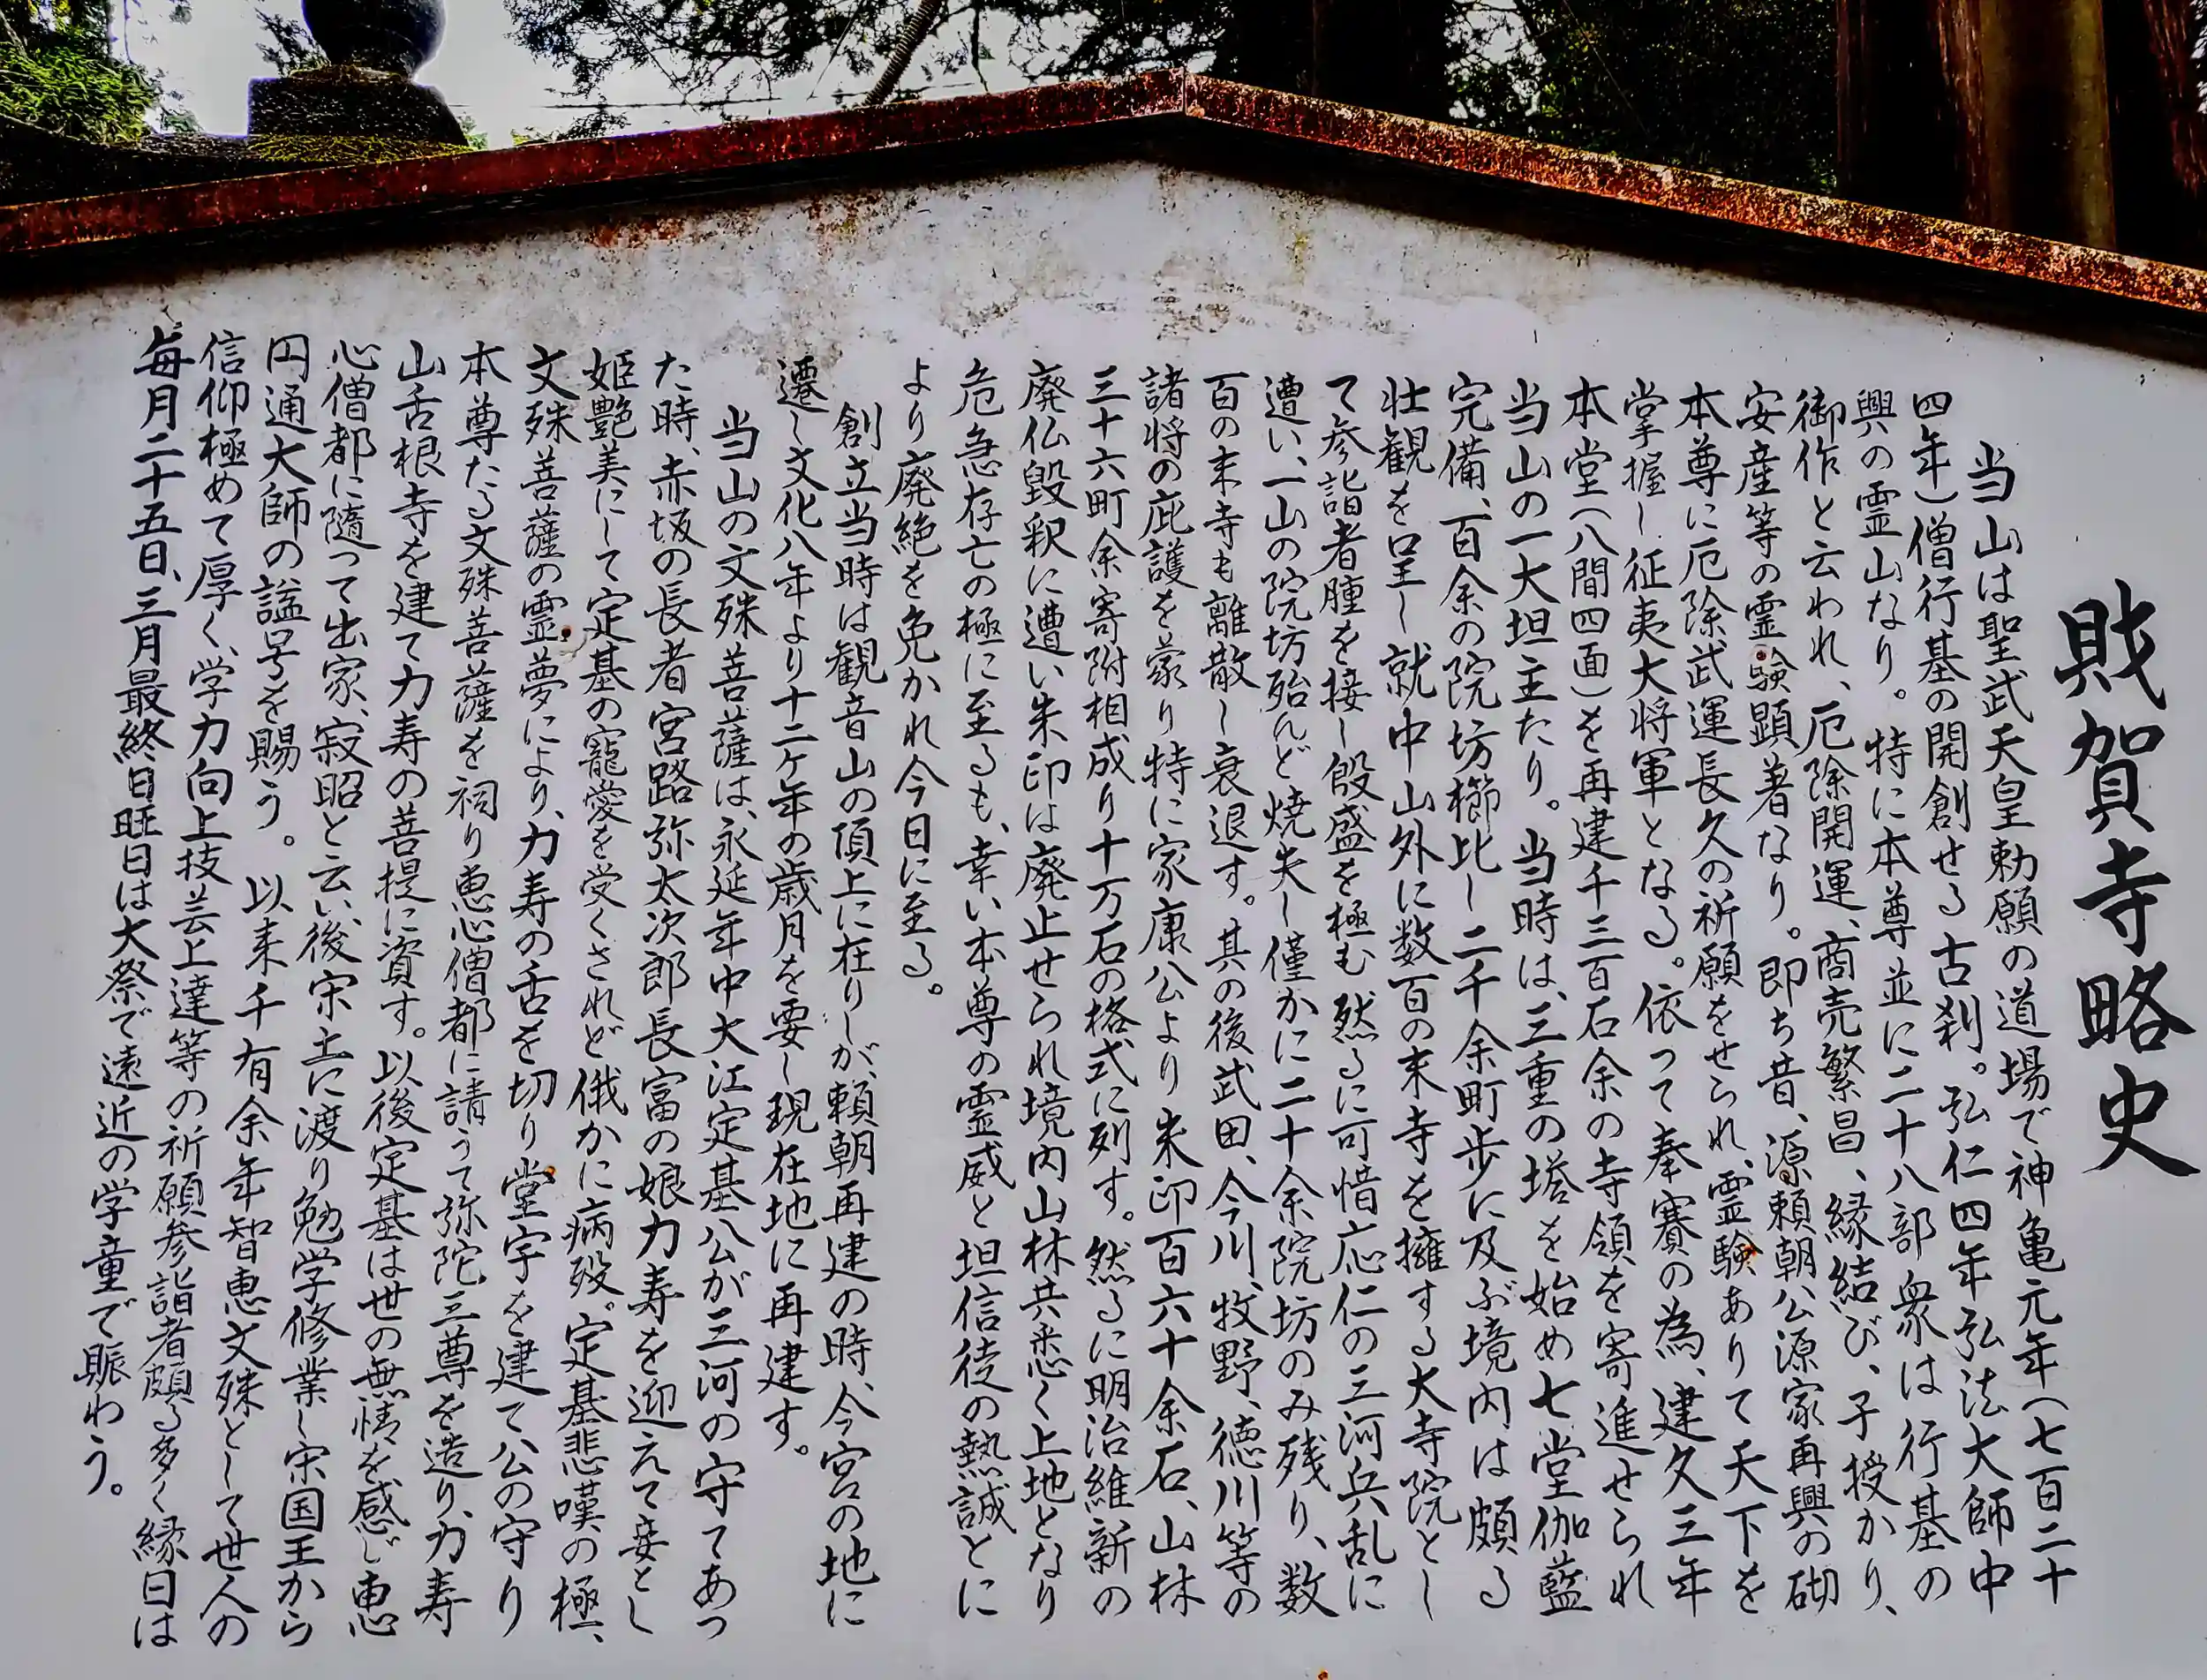 財賀寺略史
当山は聖武天皇勅願の道場で神亀元年(七百二十
四年)僧行基の開創せる古刹。弘仁四年弘法大師中
興の霊山なり。特に本尊並に二十八部衆は行基の
御作と云われ、厄除開運、商売繁昌、縁結び、子授かり、
安産等の霊験顕著なり。即ち昔、源頼朝公源家再興の砌
本尊に厄除武運長久の祈願をせられ、霊験ありて天下を
掌握し征夷大将軍となる。依って奉賽の為、建久三年
本堂(八間四面)を再建千三百石余の寺領を寄進せられ
当山の一大坦主たり。当時は、三重の塔を始め七堂伽藍
完備、百余の院坊櫛比し二千余町歩に及ぶ境内は頗る
壮観を呈し就中山外に数百の末寺を擁する大寺院とし
て参詣者腫を接し殷盛を極む然るに可惜応仁の三河兵乱に
遭い、一山の院坊殆んど焼失し僅かに二十余院坊のみ残り、数
百の末寺も離散し衰退す。其の後武田、今川、牧野、徳川等の
諸将の庇護を蒙り特に家康公より朱印百六十余石、山林
三十六町余寄附相成り十万石の格式に列す。然るに明治維新の
廃仏毀釈に遭い朱印は廃止せられ境内山林共悉く上地となり
危急存亡の極に至るも、幸い本尊の霊威と坦信徒の熱誠とに
より廃絶を免かれ今日に至る。
創立当時は観音山の頂上に在りしが、頼朝再建の時、今宮の地に
遷し文化八年より十二ヶ年の歳月を要し現在地に再建す。
当山の文殊菩薩は、永延年中大江定基公が三河の守てあっ
た時、赤坂の長者宮路弥太次郎長富の娘力寿を迎えて妾とし
姫艶美にして定基の寵愛を受くされど俄かに病歿。定基悲嘆の極、
文殊菩薩の霊夢により、力寿の舌を切り堂宇を建て公の守り
本尊たる文殊菩薩を祠り恵心僧都に請うて弥陀三尊を造り、力寿
山舌根寺を建て力寿の菩提に資す。以後定基は世の無情を感じ恵
心僧都に随って出家、寂昭と云い、後宋土に渡り勉学修業し宋国王から
円通大師の諡号を賜う。以来千有余年智恵文殊として世人の
信仰極めて厚く、学力向上技芸上達等の祈願参詣者頗る多く縁日は
毎月二十五日、三月最終日旺日は大祭で遠近の学童で賑わう。